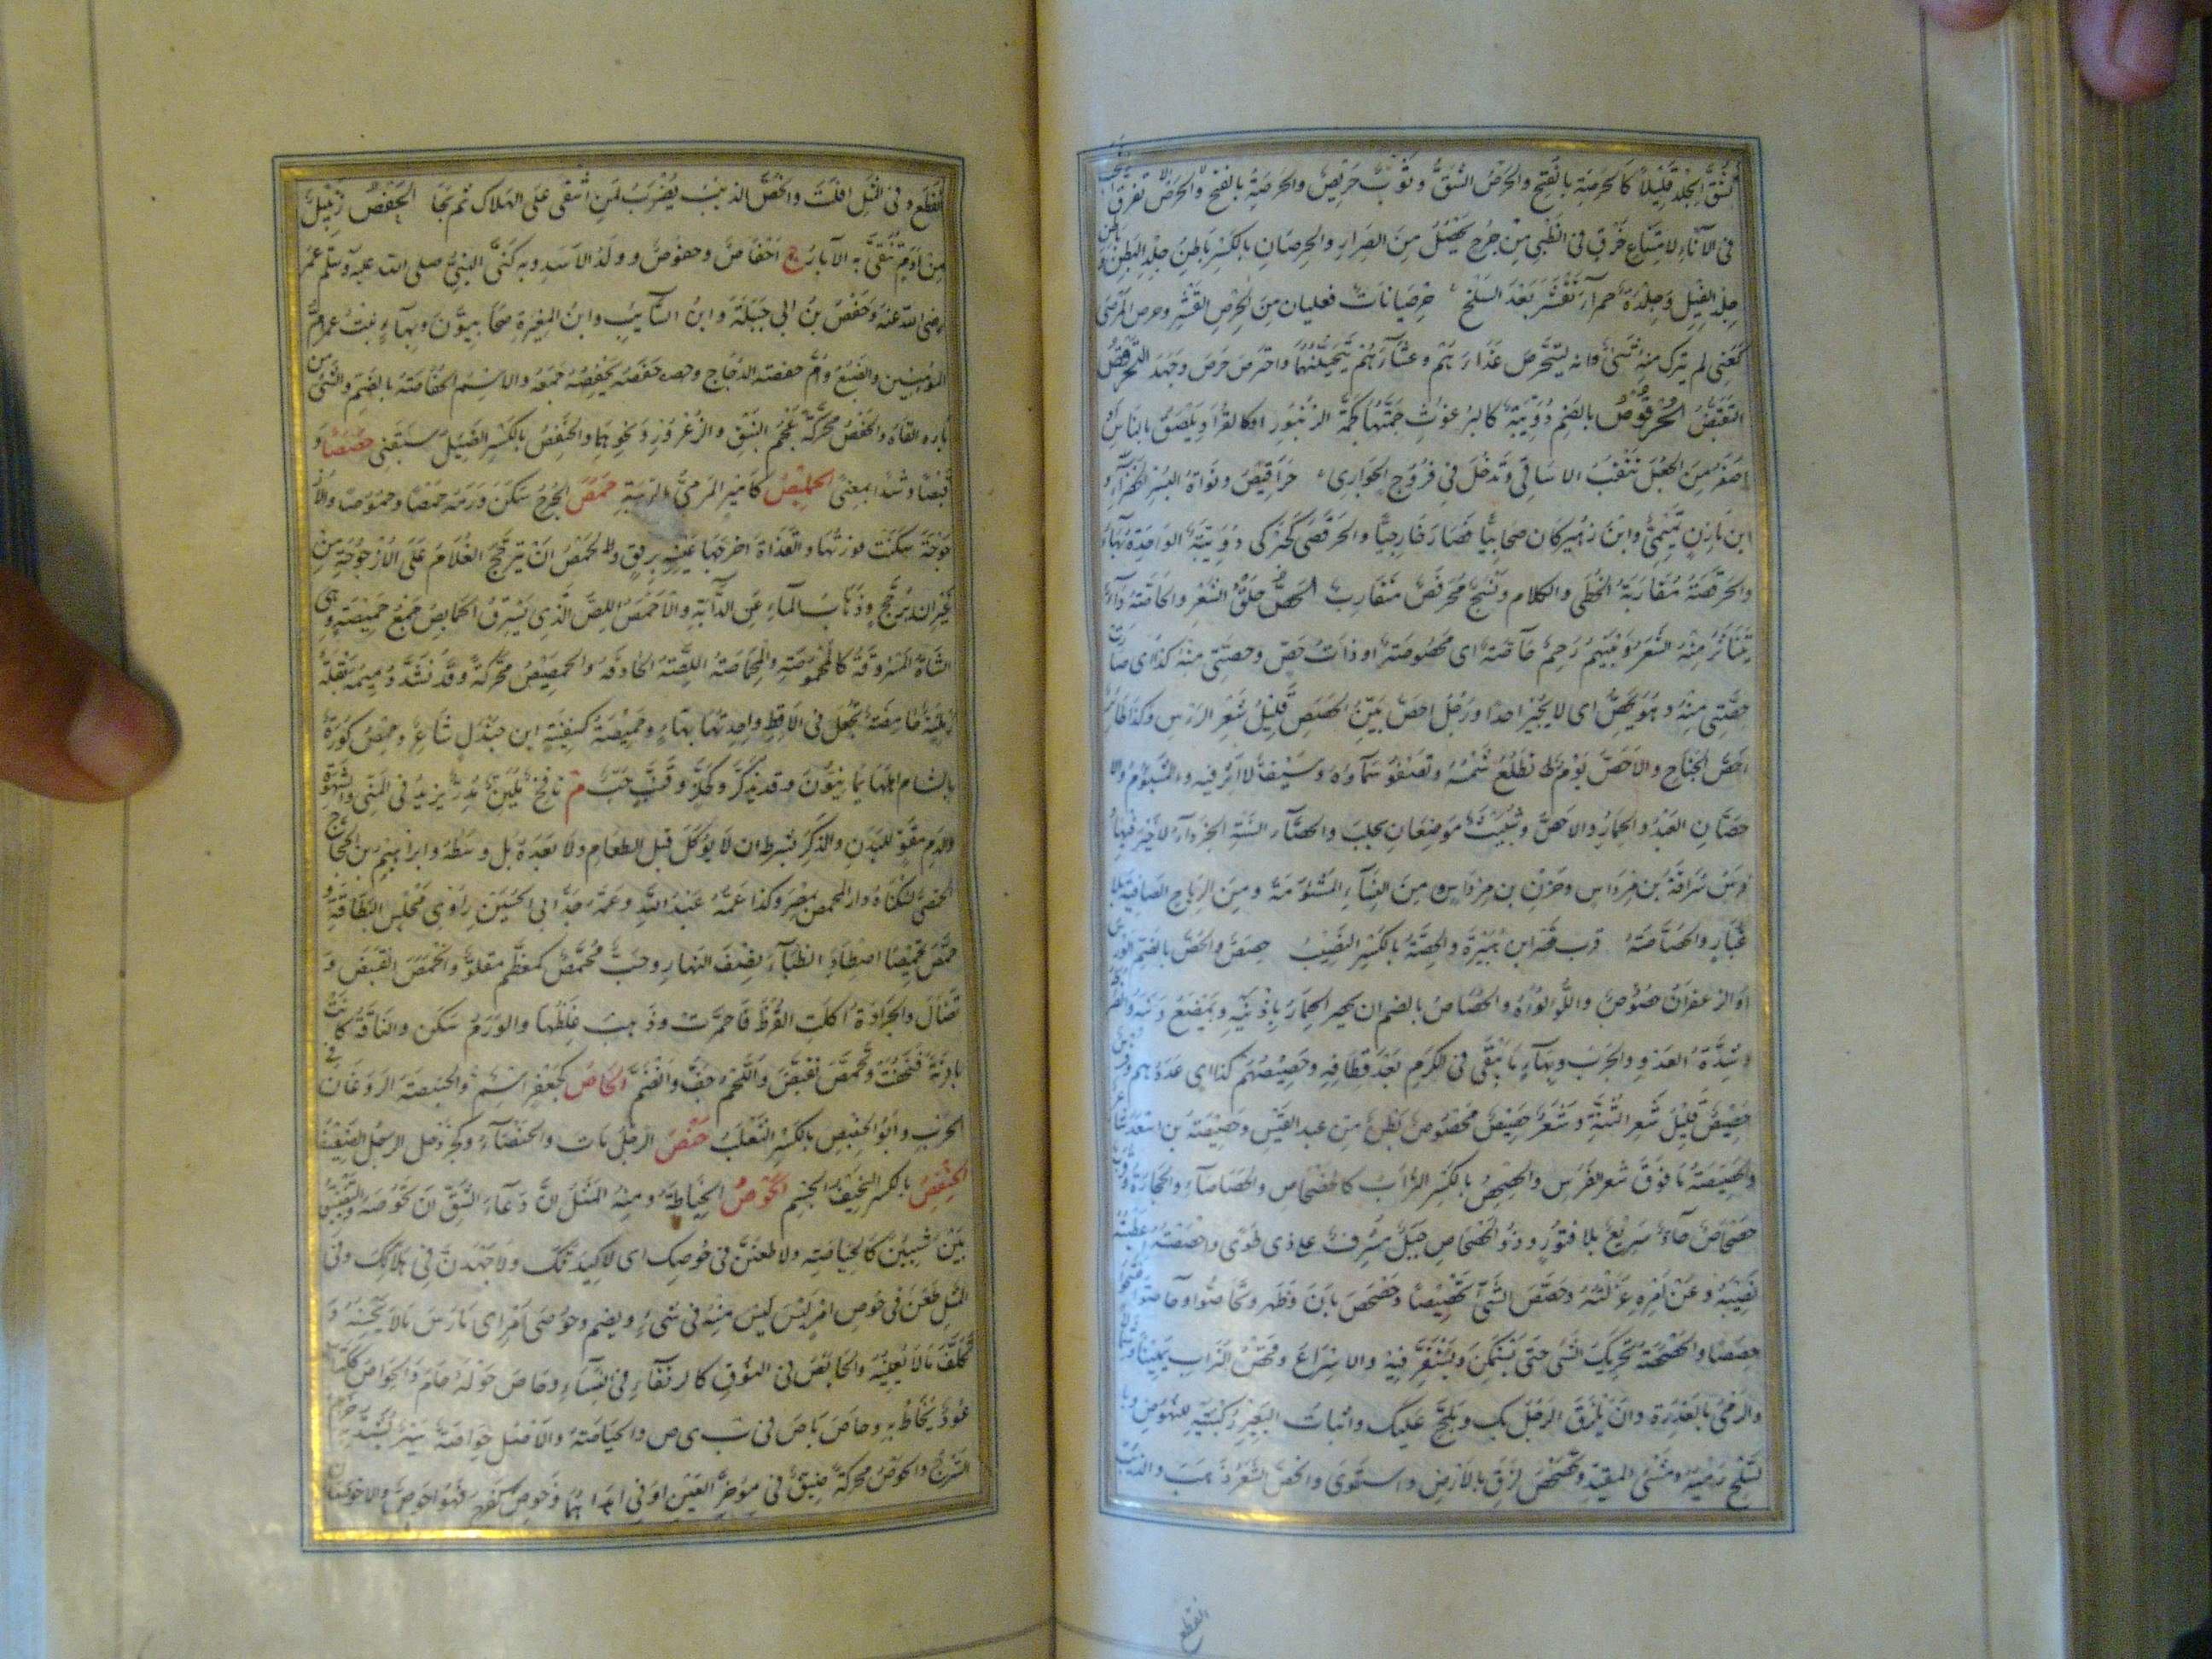 تشق الجلد قليلا كالحرصة بالفتح والحرص الشق وثوب حريص والحرصة بالفتح والحرص تفرق
في الآناء لاتساع خرق في الطبى من جرح يحصل من الصرار والحرصيان بالكسر باطن جلد البطن و باطن
جلد الفيل وجلدة حمراء تقشر بعد السلخ حرصيانات فعليان من الحرص القشر وحرص المرعى
كعنى لم يترك منه شئ وانه ليتحرص غداءهم وعشاءهم يتحينهما واحترص حرص وجهد
التقبض الحرقوص بالضم دويبة كالبرغوث حمتها كحمة الزنبور او كالقراد يلصق بالناس او
اصغر من الجعل تنقب الاساقى وتدخل في فروج الجوارى حراقيص ونواة البسر الخضراء و
ابن مازن تميمى وابن زهير كان صحابيا فصار خارجيا والحرقصى كحبركى دويبة الواحدة بهاء
والحرقصة مقاربة الخطى والكلام ونسج محرقص متقارب الحص حلق الشعر والحاصة داء
يتناثر منه الشعر وبينهم رحم حاصة اى محصوصة او ذات حص وحصتى منه كذا اى صارت
حصتى منه وهو يحص اى لا يجير احدا ورجل احص بين الحصص قليل شعر الراس وكذا طائر
احص الجناح والاحص يوم تطلع شمسه وتصفو سماؤه وسيف لا اثر فيه والمشؤوم والا
حصان العبد والحمار والاحص وشبيث موضعان بحلب والحصاء السنة الجرداء لا خير فيها و
فرس سراقة بن مرداس وحزن بن مرداس من النساء المشؤمة ومن الرياح الصافية بلا
غبار والحصاصة قرب قصر ابن هبيرة والحصة بالكسر النصيب حصص والحص بالضم الورس
او الزعفران حصوص واللؤلؤة والحصاص بالضم ان يصر الحمار باذنيه ويمصع بذنبه والضراط
وشدة العدو والجرب وبهاء ما يبقى في الكرم بعد قطافه وحصيصهم كذا اى عددهم
حصيص قليل شعر الثنة وشعر حصيص محصوص بطن من عبد القيس وحصيصة بن اسعد شاعر
والحصيصة ما فوق شعر الفرس والحصحص بالكسر التراب كالحصحاص والحصاصاء والحجارة
حصحاص جاد سريع بلا فتور وذو الحصحاص جبل مشرف على ذى طوى واحصصته اعطيته
نصيبه وعن امره عزلته وحصص الشئ تحصيصا وحصحص بان وظهر وتحاصوا وحاصوا اقتسموا
حصصا والحصحصة تحريك الشئ حتى يستمكن ويستقر فيه والاسراع وفحص التراب يمينا وشمالا
والرمى بالعذرة وان يلزق الرجل بك ويلح عليك واثبات البعير ركبتيه للنهوض وبا
لسلح رميه ومشى المقيد وتحصحص لزق بالارض واستوى وانحص الشعر ذهب والذنب
انقطع
انقطع وفى المثل افلت وانحص الذنب يضرب لمن اشفى على الهلاك ثم نجا الحفص زبيل
من ادم تنقى به الآبار ج احفاص وحفوص وولد الاسد وبه كنى النبى صلى الله عليه وسلم عمر
رضى الله عنه وحفص بن ابى جبلة وابن السائب وابن المغيرة صحابيون وبهاء بنت عمر ام
المؤمنين والضبع وام حفصة الدجاج وحفصه يحفصه جمعه والاسم الحفاصة بالضم والشئ من
يده القاه والحفص محركة عجم النبق والزعرور ونحوهما والحنفص بالكسر الضئيل سبقنى حقصا و
قبصا وشدا بمعنى الحكيص كامير المرمى بالريبة حمص الجرح سكن ورمه حمصا وحموصا والار
جوحة سكنت فورتها والقذاة اخرجها من عينه برفق والحمص ان يترجح الغلام على الارجوحة من
غير ان يرجح وذهاب الماء عن الدابة والاحمص اللص الذى يسرق الحمائص جمع حميصة وهى
الشاة المسروقة كالمحموصة والمحماصة اللصة الحاذقة والحمصيص محركة وقد تشدد ميمه بقلة
رملية حامضة تجعل في الاقط واحدتها بهاء وحميصة كسفينة ابن جندل شاعر وحمص كورة
بالشام اهلها يمانيون وقد تذكر وكحلز وقنب حب م نافخ ملين مدر يزيد في المنى والشهوة
والدم مقو للبدن والذكر بشرط ان لا يؤكل قبل الطعام ولا بعده بل وسطه وابراهيم بن الحجاج
الحمصى لسكناه دار الحمص بمصر وكذا عمه عبد الله وعمه جد ابى الحسين راوى مجلس البطاقة و
حمص تحميصا اصطاد الظباء نصف النهار وحب محمص كمعظم مقلو وانحمص انقبض و
تضاءل والجرادة اكلت القرظ فاحمرت وذهب غلظها والورم سكن والناقة كانت
بادنة فنحفت وتحمص تقبض واللحم جف وانضم حنبص كجعفر اسم والحنبصة الروغان في
الحرب وابو الحنبص بالكسر الثعلب حنص الرجل مات والحنصأو كجردحل الرجل الضعيف
الحنفص بالكسر النحيف الجسم الحوص الخياطة ومنه المثل ان دواء الشق ان تحوصه والتضييق
بين شيئين كالحياصة ولاطعنن في حوصك اى لاكيدنك ولاجهدن في هلاكك وفى
المثل طعن في حوص امر ليس منه في شئ ويضم وحوصى امر اى مارس ما لا يحسنه و
تكلف ما لا يعنيه والحائص في النوق كالرتقاء في النساء وحاص حوله حام والحواص ككتاب
عود يخاط به وحاص باص في ب ى ص والحياصة والاصل حواصة سير يشد به حزام
السرج والحوص محركة ضيق في مؤخر العين او فى احداهما وحوص كفرح فهو احوص والاحوصان